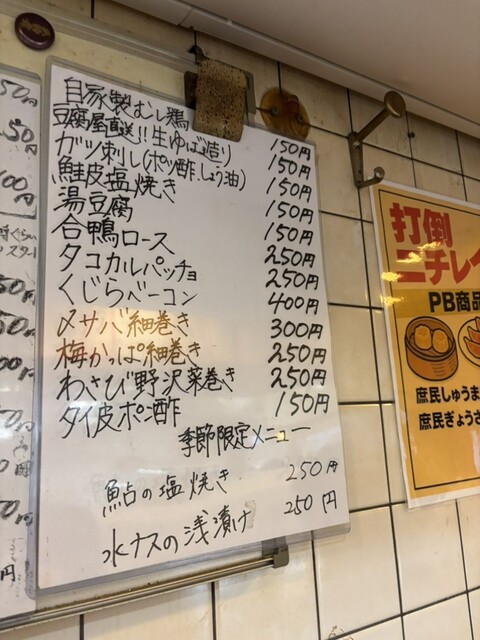 自家製むし鶏 150円
豆腐屋直送!!生ゆば造り 150円
ガツ刺し(ポン酢、しょう油) 150円
鮭皮塩焼き 150円
湯豆腐 150円
合鴨ロース 250円
タコカルパッチョ 250円
くじらベーコン 400円
〆サバ細巻き 300円
梅かっぱ細巻き 250円
わさび野沢菜巻き 250円
タイ皮ポン酢 150円
季節限定メニュー
鮎の塩焼き 250円
水ナスの浅漬け 250円
打倒
ニチレイ
PB商品
庶民しゅうま
庶民ぎょうざ